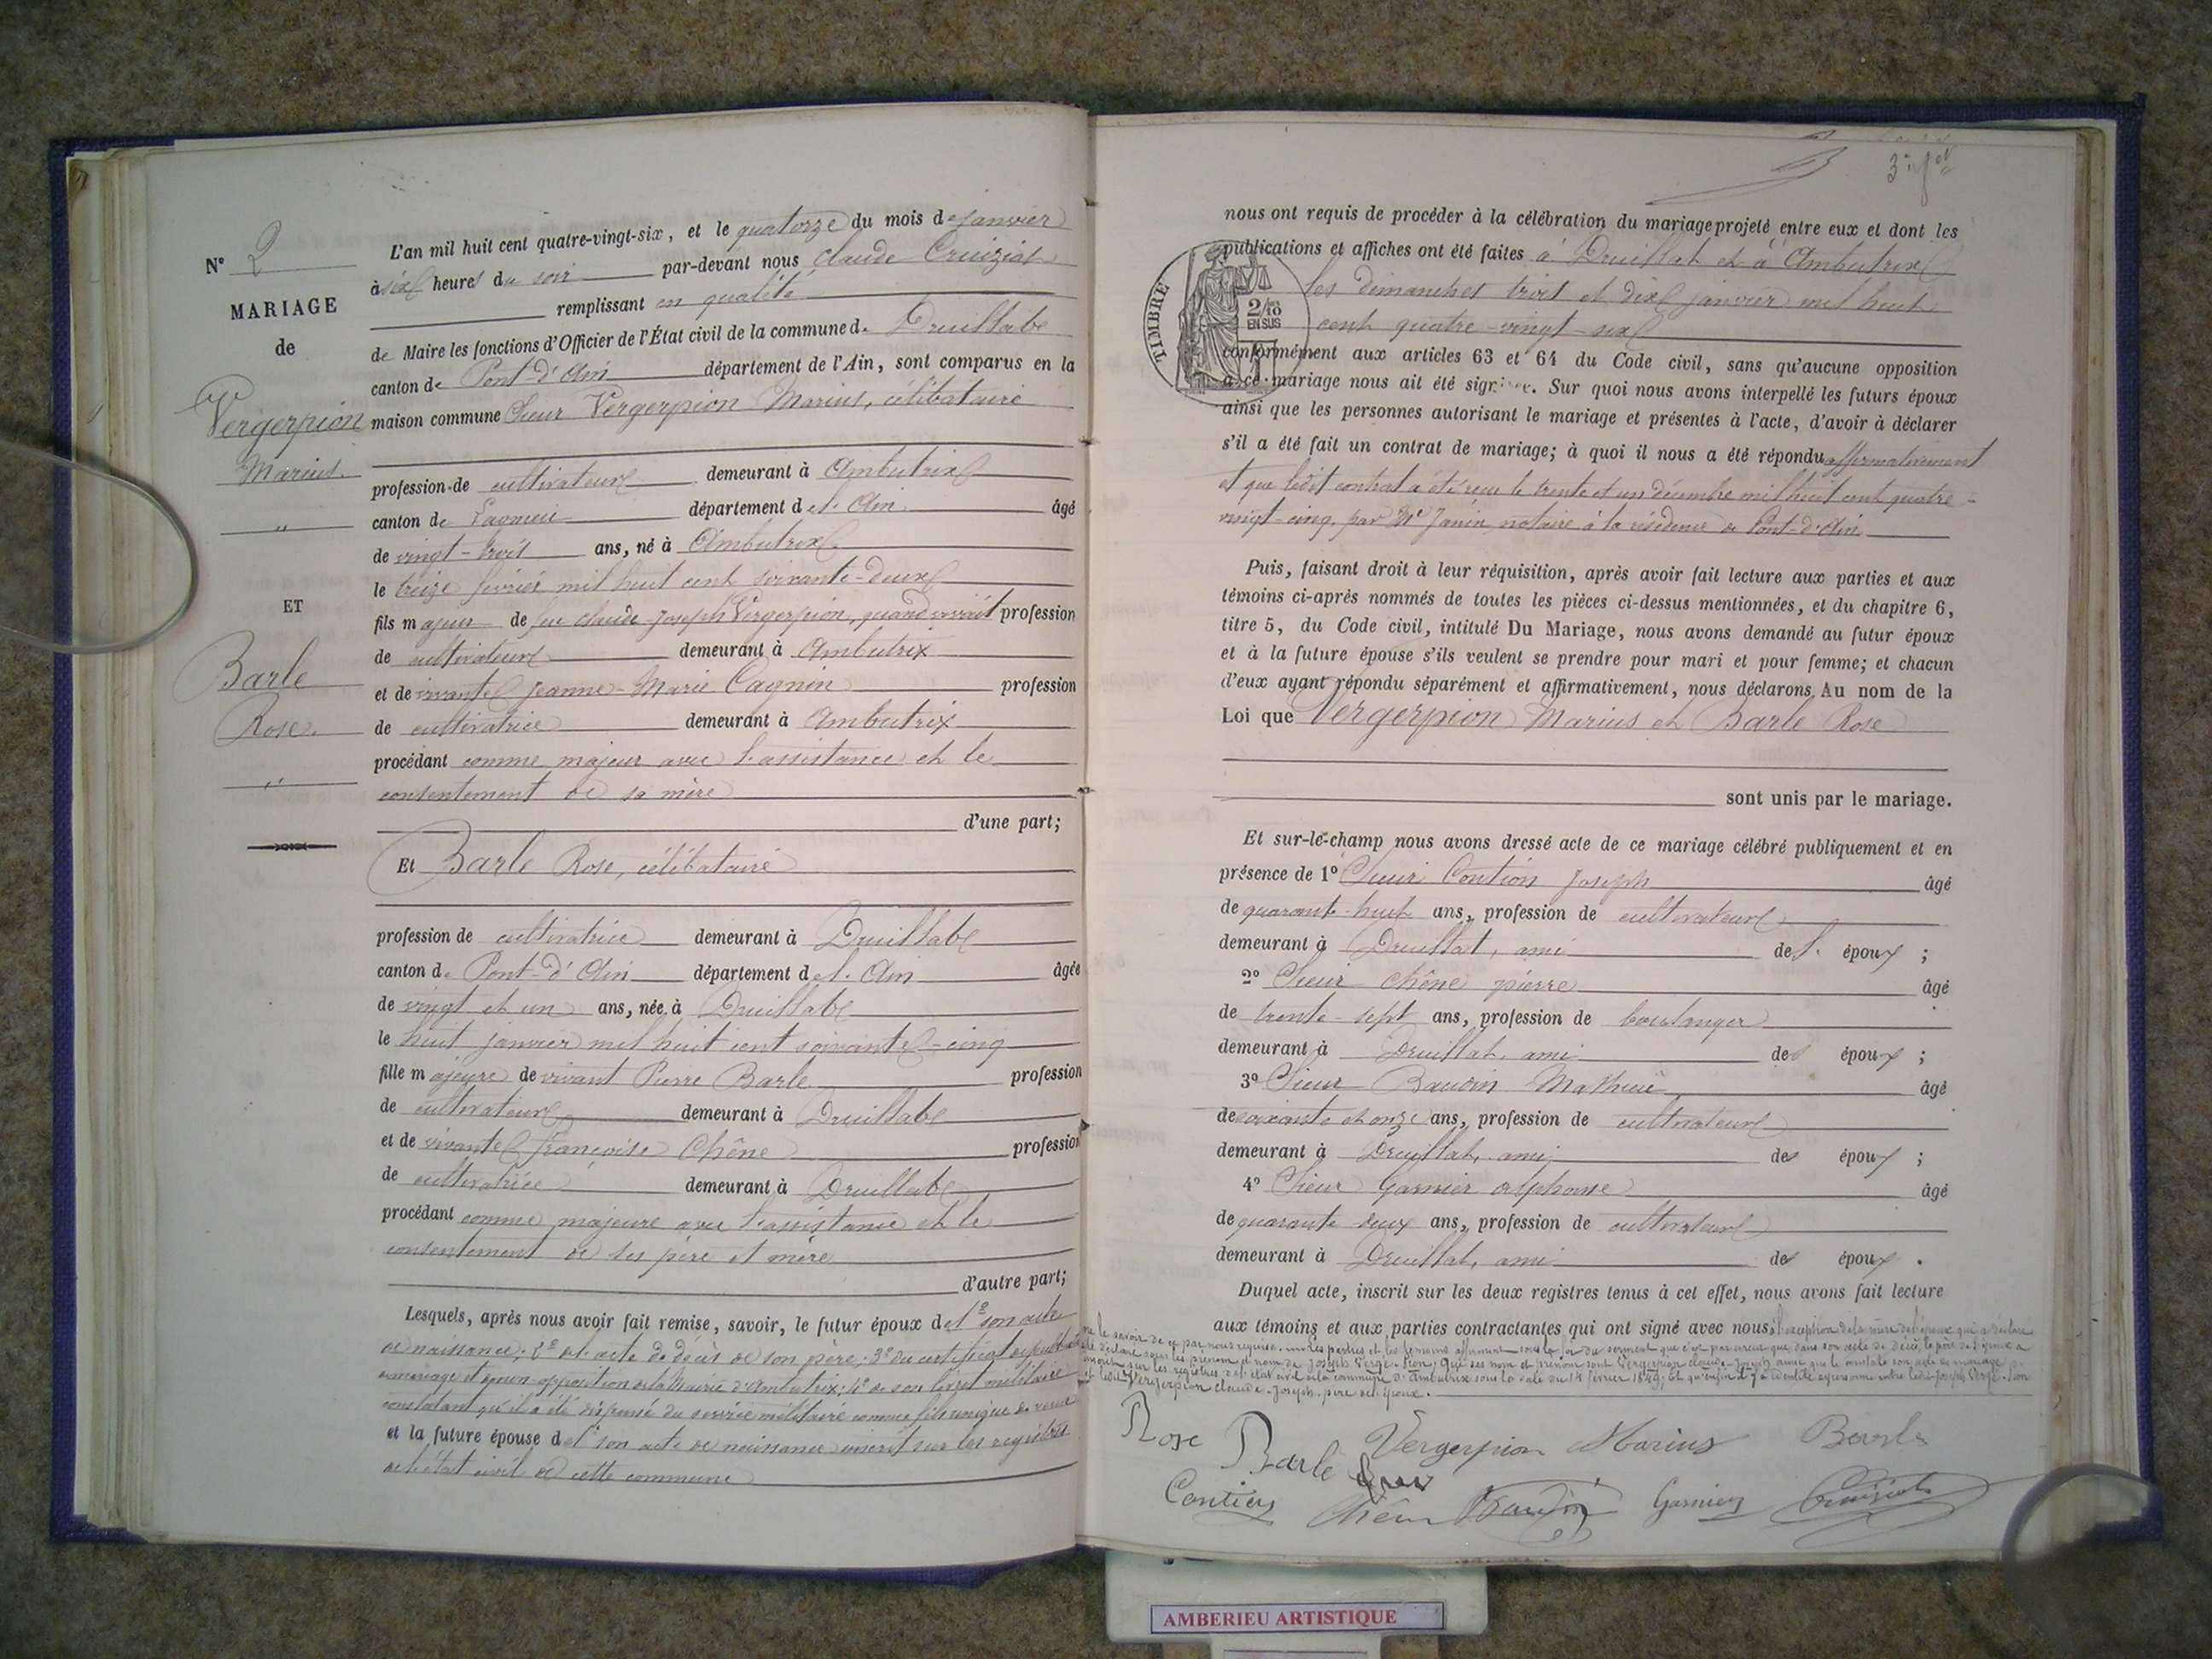 N° 2
MARIAGE
de
Vergerpion
Marius
"
ET
Barle
Rose
"
L'an mil huit cent quatre-vingt-six, et le quatorze du mois de janvier
à six heures du soir par-devant nous Claude Cruiziat
remplissant en qualité
de Maire les fonctions d'Officier de l'État civil de la commune de Druillat
canton de Pont-d'Ain département de l'Ain, sont comparus en la
maison commune Sieur Vergerpion Marius, célibataire
profession de cultivateur demeurant à Ambutrix
canton de Lagnieu département de l'Ain âgé
de vingt-trois ans, né à Ambutrix
le treize février mil huit cent soixante-deux
fils majeur de feu Claude-Joseph Vergerpion, quand vivait profession
de cultivateur demeurant à Ambutrix
et de vivante Jeanne-Marie Cagnin profession
de cultivatrice demeurant à Ambutrix
procédant comme majeur avec l'assistance et le
consentement de sa mère
d'une part;
Et Barle Rose, célibataire
profession de cultivatrice demeurant à Druillat
canton de Pont-d'Ain département de l'Ain âgée
de vingt et un ans, née à Druillat
le huit janvier mil huit cent soixante-cinq
fille majeure de vivant Pierre Barle profession
de cultivateur demeurant à Druillat
et de vivante Françoise Chêne profession
de cultivatrice demeurant à Druillat
procédant comme majeure avec l'assistance et le
consentement de ses père et mère
d'autre part;
Lesquels, après nous avoir fait remise, savoir, le futur époux de 1° son acte
de naissance; 2° de l'acte de décès de son père; 3° du certificat de publication
de mariage et de non opposition de la Mairie d'Ambutrix; 4° de son livret militaire
constatant qu'il a été dispensé du service militaire comme fils unique de veuve
et la future épouse de son acte de naissance inscrit sur les registres
de l'état civil de cette commune
3
nous ont requis de procéder à la célébration du mariage projeté entre eux et dont les
publications et affiches ont été faites à Druillat et à Ambutrix
les dimanches trois et dix janvier mil huit
cent quatre-vingt-six
TIMBRE
2/10
EN SUS
conformément aux articles 63 et 64 du Code civil, sans qu'aucune opposition
à ce mariage nous ait été signifiée. Sur quoi nous avons interpellé les futurs époux
ainsi que les personnes autorisant le mariage et présentes à l'acte, d'avoir à déclarer
s'il a été fait un contrat de mariage; à quoi il nous a été répondu affirmativement
et que ledit contrat a été reçu le trente et un décembre mil huit cent quatre-
vingt-cinq, par Me Janin, notaire à la résidence de Pont-d'Ain
Puis, faisant droit à leur réquisition, après avoir fait lecture aux parties et aux
témoins ci-après nommés de toutes les pièces ci-dessus mentionnées, et du chapitre 6,
titre 5, du Code civil, intitulé Du Mariage, nous avons demandé au futur époux
et à la future épouse s'ils veulent se prendre pour mari et pour femme; et chacun
d'eux ayant répondu séparément et affirmativement, nous déclarons, Au nom de la
Loi que Vergerpion Marius et Barle Rose
sont unis par le mariage.
Et sur-le-champ nous avons dressé acte de ce mariage célébré publiquement et en
présence de 1° Sieur Contion Joseph âgé
de quarante-huit ans, profession de cultivateur
demeurant à Druillat, ami de l'époux ;
2° Sieur Chêne pierre âgé
de trente-sept ans, profession de boulanger
demeurant à Druillat, ami des époux ;
3° Sieur Baudin Mathieu âgé
de soixante et onze ans, profession de cultivateur
demeurant à Druillat, ami des époux ;
4° Sieur Garnier alphonse âgé
de quarante-deux ans, profession de cultivateur
demeurant à Druillat, ami des époux .
Duquel acte, inscrit sur les deux registres tenus à cet effet, nous avons fait lecture
aux témoins et aux parties contractantes qui ont signé avec nous à l'exception de la mère de l'époux qui a déclaré
ne le savoir de ce par nous requise. Les parties et les témoins affirment sous la foi du serment que c'est par erreur que dans son acte de décès, le père de l'époux a
été déclaré sous les prénom et nom de Joseph Verge-Pion; Que ses nom et prénom sont Vergerpion Claude-Joseph, ainsi que le constate son acte de mariage
inscrit sur les registres de l'état civil de la commune d'Ambutrix sous la date du 14 février 1849; Et qu'enfin il y a identité expresse entre ledit Joseph Verge-Pion
et ledit Vergerpion Claude-Joseph, père de l'époux.
Rose Barle Vergerpion Marius Barle
Contion Chêne Baudin Garnier Cruiziat
AMBERIEU ARTISTIQUE